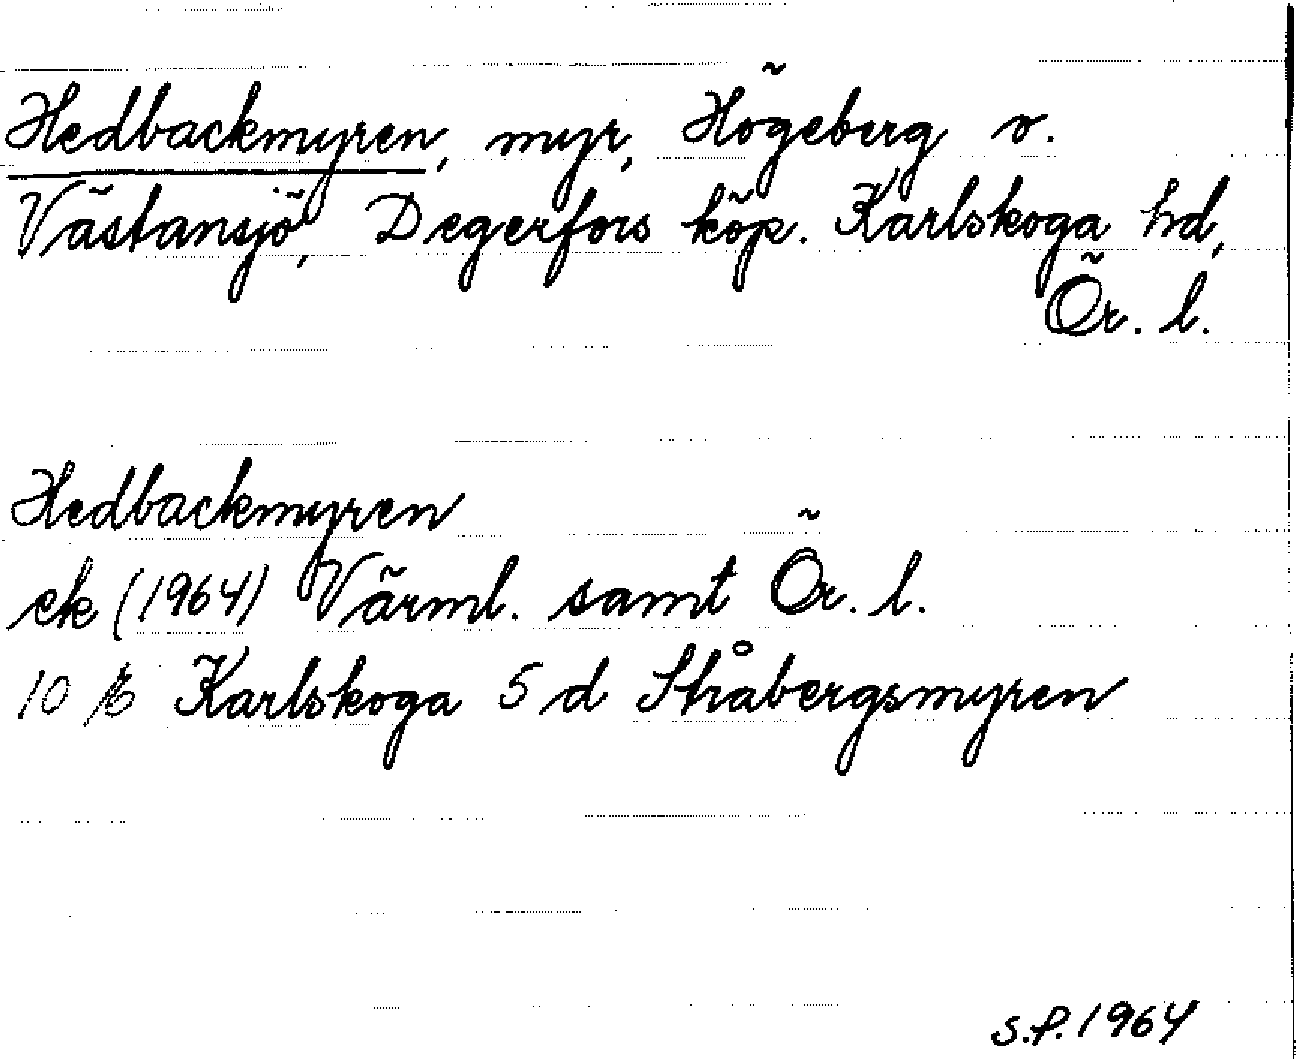 Hedbackmyren, myr, Högeberg v.
Västansjö, Degerfors köp. Karlskoga hd,
Ör. l.
Hedbackmyren
ek (1964) Värml. samt Ör. l.
10 E Karlskoga 5 d Stråbergsmyren
S.P. 1964